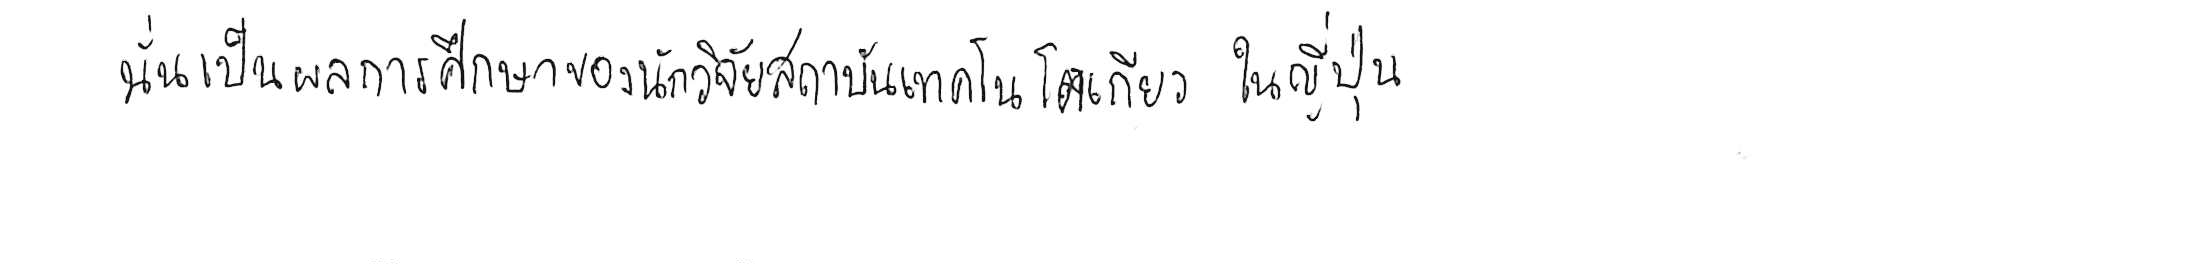 นั่นเป็นผลการศึกษาของนักวิจัยสถาบันเทคโนโตเกียว ในญี่ปุ่น